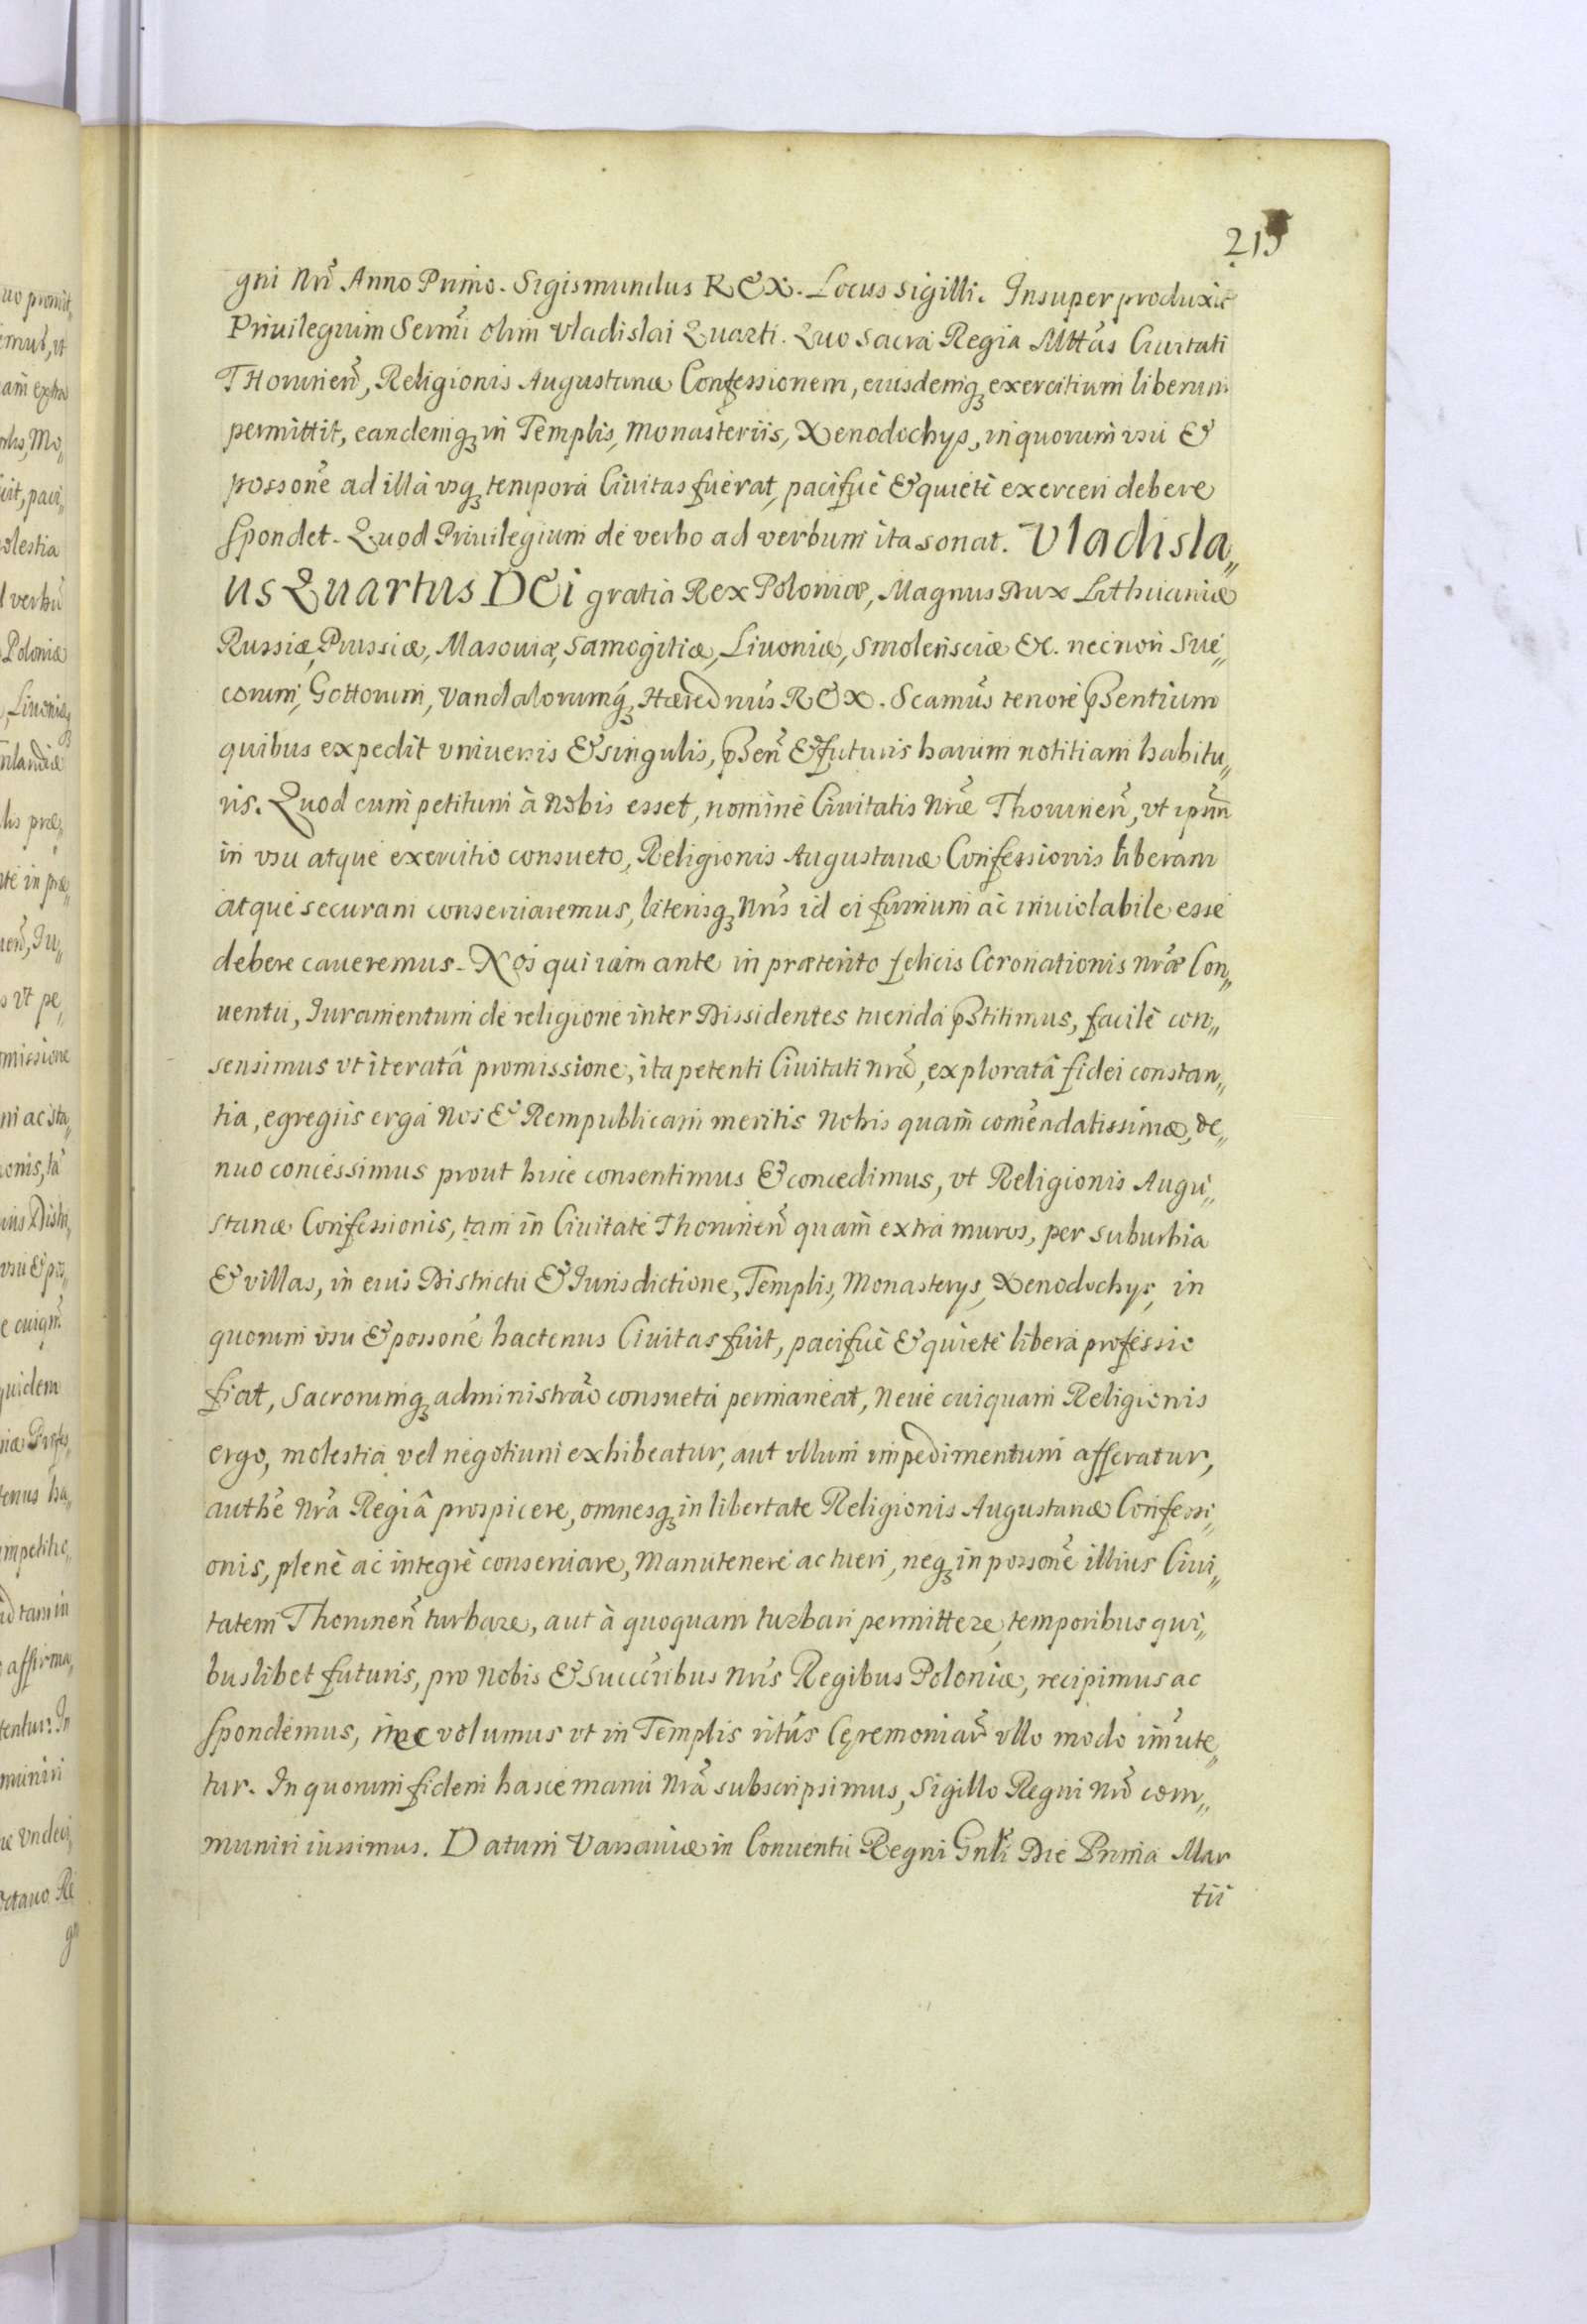 215
gni Nrĩ Anno Primo. Sigismundus REX. Locus sigilli. Insuper produxit
Priuilegium Sermĩ olim Vladislai Quarti. Quo Sacra Regia Mttãs Ciuitati
THoruneñ, Religionis Augustanæ Confessionem, eiusdemq; exercitium liberum
permittit, eandemq; in Templis, Monasteriis, Xenodochys, in quorum vsu &
possone ad illa vsq; tempora Ciuitas fuerat, pacifice & quietè exerceri debere
spondet. Quod Priuilegium de verbo ad verbum ita sonat. Vladisla„
us Quartus DEi gratia Rex Poloniæ, Magnus Dux Lithuaniæ
Russiæ, Prussiæ, Masouiæ, Samogitiæ, Liuoniæ, Smolensciæ &c. necnon Sue„
corum, Gottorum, Vandalorumq; Hæred nũs REX. Scamũs tenore pñsentium
quibus expedit vniuersis & singulis, pñseñ & futuris harum notitiam habitu„
ris. Quod cum petitum à Nobis esset, nomine Ciuitatis Nræ Thoruneñ, vt ipsam
in vsu atque exercitio consueto, Religionis Augustanæ Confessionis liberam
atque securam conseruaremus, literisq; Nrĩs id ei firmum ac inuiolabile esse
debere caueremus. Nos qui iam ante in præterito felicis Coronationis nræ Con„
uentu, Iuramentum de religione inter Dissidentes tuenda pñstitimus, facilè con„
sensimus vt iteratâ promissione, ita petenti Ciuitati nræ, exploratâ fidei constan„
tia, egregiis erga Nos & Rempublicam meritis Nobis quam comẽndatissimæ, de„
nuo concessimus prout hisce consentimus & concedimus, vt Religionis Augu„
stanæ Confessionis, tam in Ciuitate Thoruneñ quam extra muros, per suburbia
& villas, in eius Districtu & Iurisdictione, Templis, Monasterys, Xenodochys, in
quorum vsu & possone hactenus Ciuitas fuit, pacifice & quiete libera professio
fiat, Sacrorumq; administrão consueta permaneat, Neue cuiquam Religionis
ergo, molestia vel negotium exhibeatur, aut vllum impedimentum afferatur,
authe Nrã Regiâ prospicere, omnesq; in libertate Religionis Augustanæ Confessi„
onis, plenè ac integrè conseruare, Manutenere ac tueri, neq; in possone illius Ciui„
tatem Thoruneñ turbare, aut à quoquam turbari permittere, temporibus qui„
buslibet futuris, pro Nobis & Succoribus Nrĩs Regibus Poloniæ, recipimus ac
spondemus, nec volumus vt in Templis ritũs Cęremoniar̃ vllo modo imũte„
tur. In quorum fidem hasce manu Nrã subscripsimus, Sigillo Regni Nrĩ com„
muniri iussimus. Datum Varsauiæ in Conuentu Regni Gnli Die Prima Mar
tii